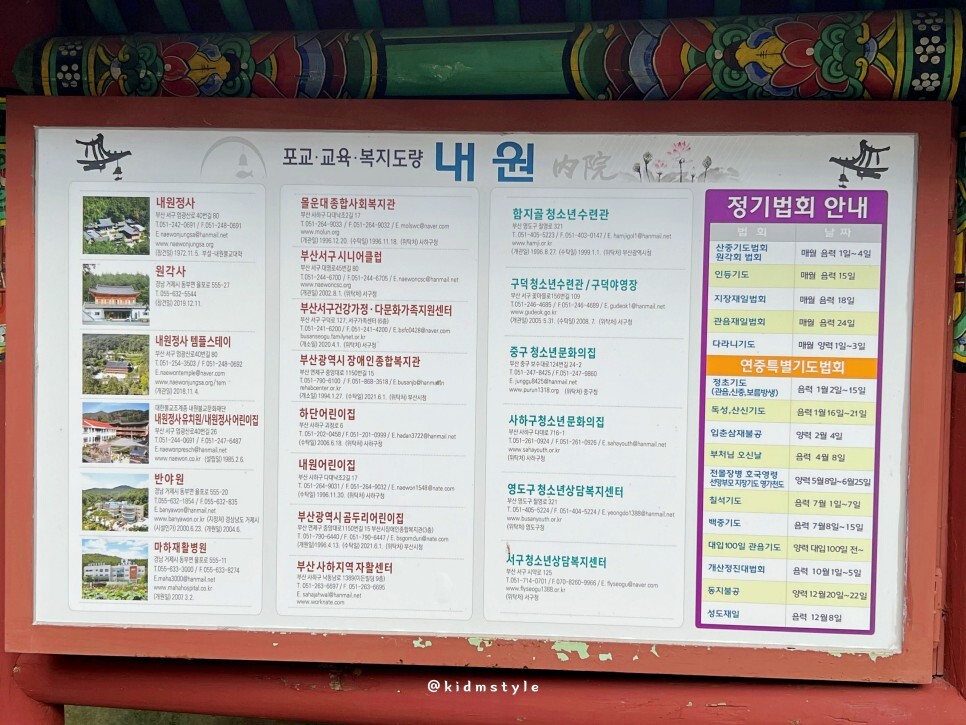 포교·교육·복지도량 내원 内院
내원정사
부산 서구 엄광산로 40번길 80
T.051-242-0691 / F.051-248-0691
E.naewonjungsa@hanmail.net
www.naewonjungsa.org
(창건일) 1972.11.5 부설-내원불교대학
원각사
경남 거제시 동부면 율포로 555-27
T.055-632-5544
(창건일) 2019.12.11.
내원정사 템플스테이
부산 서구 엄광산로40번길 80
T.051-254-3503 / F.051-248-0692
E.naewontemple@naver.com
www.naewonjungsa.org/tem
(개관일) 2018.11.4.
대한불교조계종 내원불교문화재단
내원정사유치원/내원정사어린이집
부산 서구 엄광산로40번길 26
T.051-244-0691 / F.051-247-6487
E.naewonpresch@hanmail.net
www.naewon.co.kr (설립일) 1985.2.6.
반야원
경남 거제시 동부면 율포로 555-20
T.055-632-1854 / F.055-632-835
E.banyawon@hanmail.net
www.banyawon.or.kr (지정처) 경상남도 거제시
(시설인가) 2000.6.23. (개원일) 2004.6.
마하재활병원
경남 거제시 동부면 율포로 555-11
T.055-633-3000 / F.055-633-8274
E.maha3000@hanmail.net
www.mahahospital.co.kr
(개원일) 2007.2.2.
몰운대 종합사회복지관
부산 사하구 다대낙조2길 17
T. 051-264-9033 / F. 051-264-9032 / E. molswc@naver.com
www.molun.org
(개관일) 1996.12.20. (수탁일) 1996.11.18. (위탁처) 사하구청
부산서구시니어클럽
부산 서구 대영로45번길
T.051-244-6700 / F.051-244-6705 / E. naewoncsc@hanmail.net
www.naewoncsc.org
(개관일) 2002.8.1. (위탁처) 서구청
부산서구건강가정·다문화가족지원센터
부산 서구 구덕로 127, 서구가족센터 (6층)
T.051-241-6200 / F.051-241-4200 / E.bsfc0428@naver.com
busanseogu.familynet.or.kr
(개소일) 2020.4.1. (위탁처) 서구청
부산광역시 장애인종합복지관
부산 연제구 중앙대로 1150번길 15
T. 051-790-6100 / F. 051-868-3518 / E.busanjb@hanmail
rehabcenter.or.kr
(개관일) 1994.1.27. (수탁일) 2021.6.1. (위탁처) 부산시청
하단어린이집
부산 사하구 괴정로 6
T. 051-202-0458 / F. 051-201-0999 / E.hadan3722@hanmail.net
(수탁일) 2006.6.18. (위탁처) 사하구청
내원어린이집
부산 사하구 다대낙조2길 17
T. 051-264-9031 / F. 051-264-9032 / E. naewon1548@nate.com
(수탁일) 1996.11.30. (위탁처) 사하구청
부산광역시곰두리어린이집
부산 연제구 중앙대로1150번길 15 부산시장애인종합복지관(3층)
T.051-790-6440 / F.051-790-6447 / E.bsgomduri@nate.com
(개관일)1996.4.13. (수탁일) 2021.6.1. (위탁처) 부산시청
부산사하지역자활센터
부산 사하구 낙동남로 1389(이든빌딩 9층)
T. 051-263-6697 / F. 051-263-6695
E. sahaphwal@hanmail.net
www.worknate.com
함지골 청소년수련관
부산 영도구 함영로 321
T. 051-405-5223 / F. 051-403-0147 / E. hamjigol1@hanmail.net
www.hamji.or.kr
(개관일) 1996.8.27. (수탁일) 1999.1.1. (위탁처) 부산광역시
구덕청소년수련관 / 구덕야영장
부산 서구 꽃마을로156번길 109
T.051-246-4685 / F.051-246-4669 / E.gudeok1@hanmail.net
www.gudeok.go.kr
(개관일) 2005.5.31. (수탁일) 2008.7. (위탁처) 서구청
중구 청소년문화의집
부산 중구 보수대로124번길 24-2
T. 051-247-8425 / F.051-247-9860
E. junggu8425@hanmail.net
www.purun1318.org (위탁처) 중구청
사하구청소년문화의집
부산 사하구 다대로 716-1
T. 051-261-0924 / F. 051-261-0926 / E. sahayouth@hanmail.net
www.sahayouth.or.kr
(위탁처) 사하구청
영도구청소년상담복지센터
부산 영도구 함영로 321
T. 051-405-5224 / F. 051-404-5224 / E. yeongdo1388@hanmail.net
www.busanyouth.or.kr
(위탁처) 영도구청
서구청소년상담복지센터
부산 서구 시약로 125
T. 051-714-0701 / F.070-8260-9966 / E. flyseogu@naver.com
www.flyseogu1388.or.kr
(위탁처) 서구청
정기법회 안내
법 회 날 짜
산중기도법회
원각회 법회 매월 음력 1일~4일
인등기도 매월 음력 15일
지장재일법회 매월 음력 18일
관음재일법회 매월 음력 24일
다라니기도 매월 양력 1일~3일
연중특별기도법회
정초기도
(관음,신중,보름방생) 음력 1월2일~15일
독성,산신기도 음력 1월16일~21일
입춘삼재불공 양력 2월 4일
부처님 오신날 음력 4월 8일
전몰장병 호국영령
선망부모 지장기도 영가천도 양력 5월8일~6월25일
칠석기도 음력 7월 1일~7일
백중기도 음력 7월8일~15일
대입100일 관음기도 양력 대입100일 전~
개산정진대법회 음력 10월1일~5일
동지불공 양력 12월20일~22일
성도재일 음력 12월8일
@kidmstyle